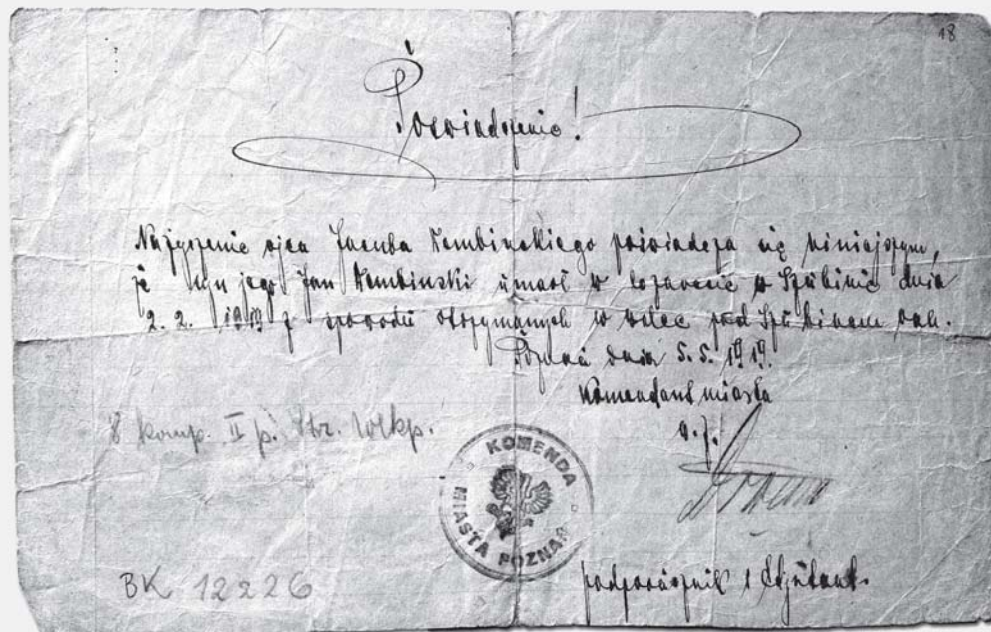 18
Poświadczenie!
Na życzenie ojca Jacuba Kembinskiego poświadcza się niniejszym,
że syn jego Jan Kembinski umarł w lazarecie w Szubinie dnia
2. 2. 1919 z powodu otrzymanych w walce pod Szubinem ran.
Poznań dnia 5. 5. 1919.
Komendant miasta
8 komp. II p. Str. Wlkp.
KOMENDA
MIASTA POZNAŃ
podporucznik i Adjutant.
BK 12226